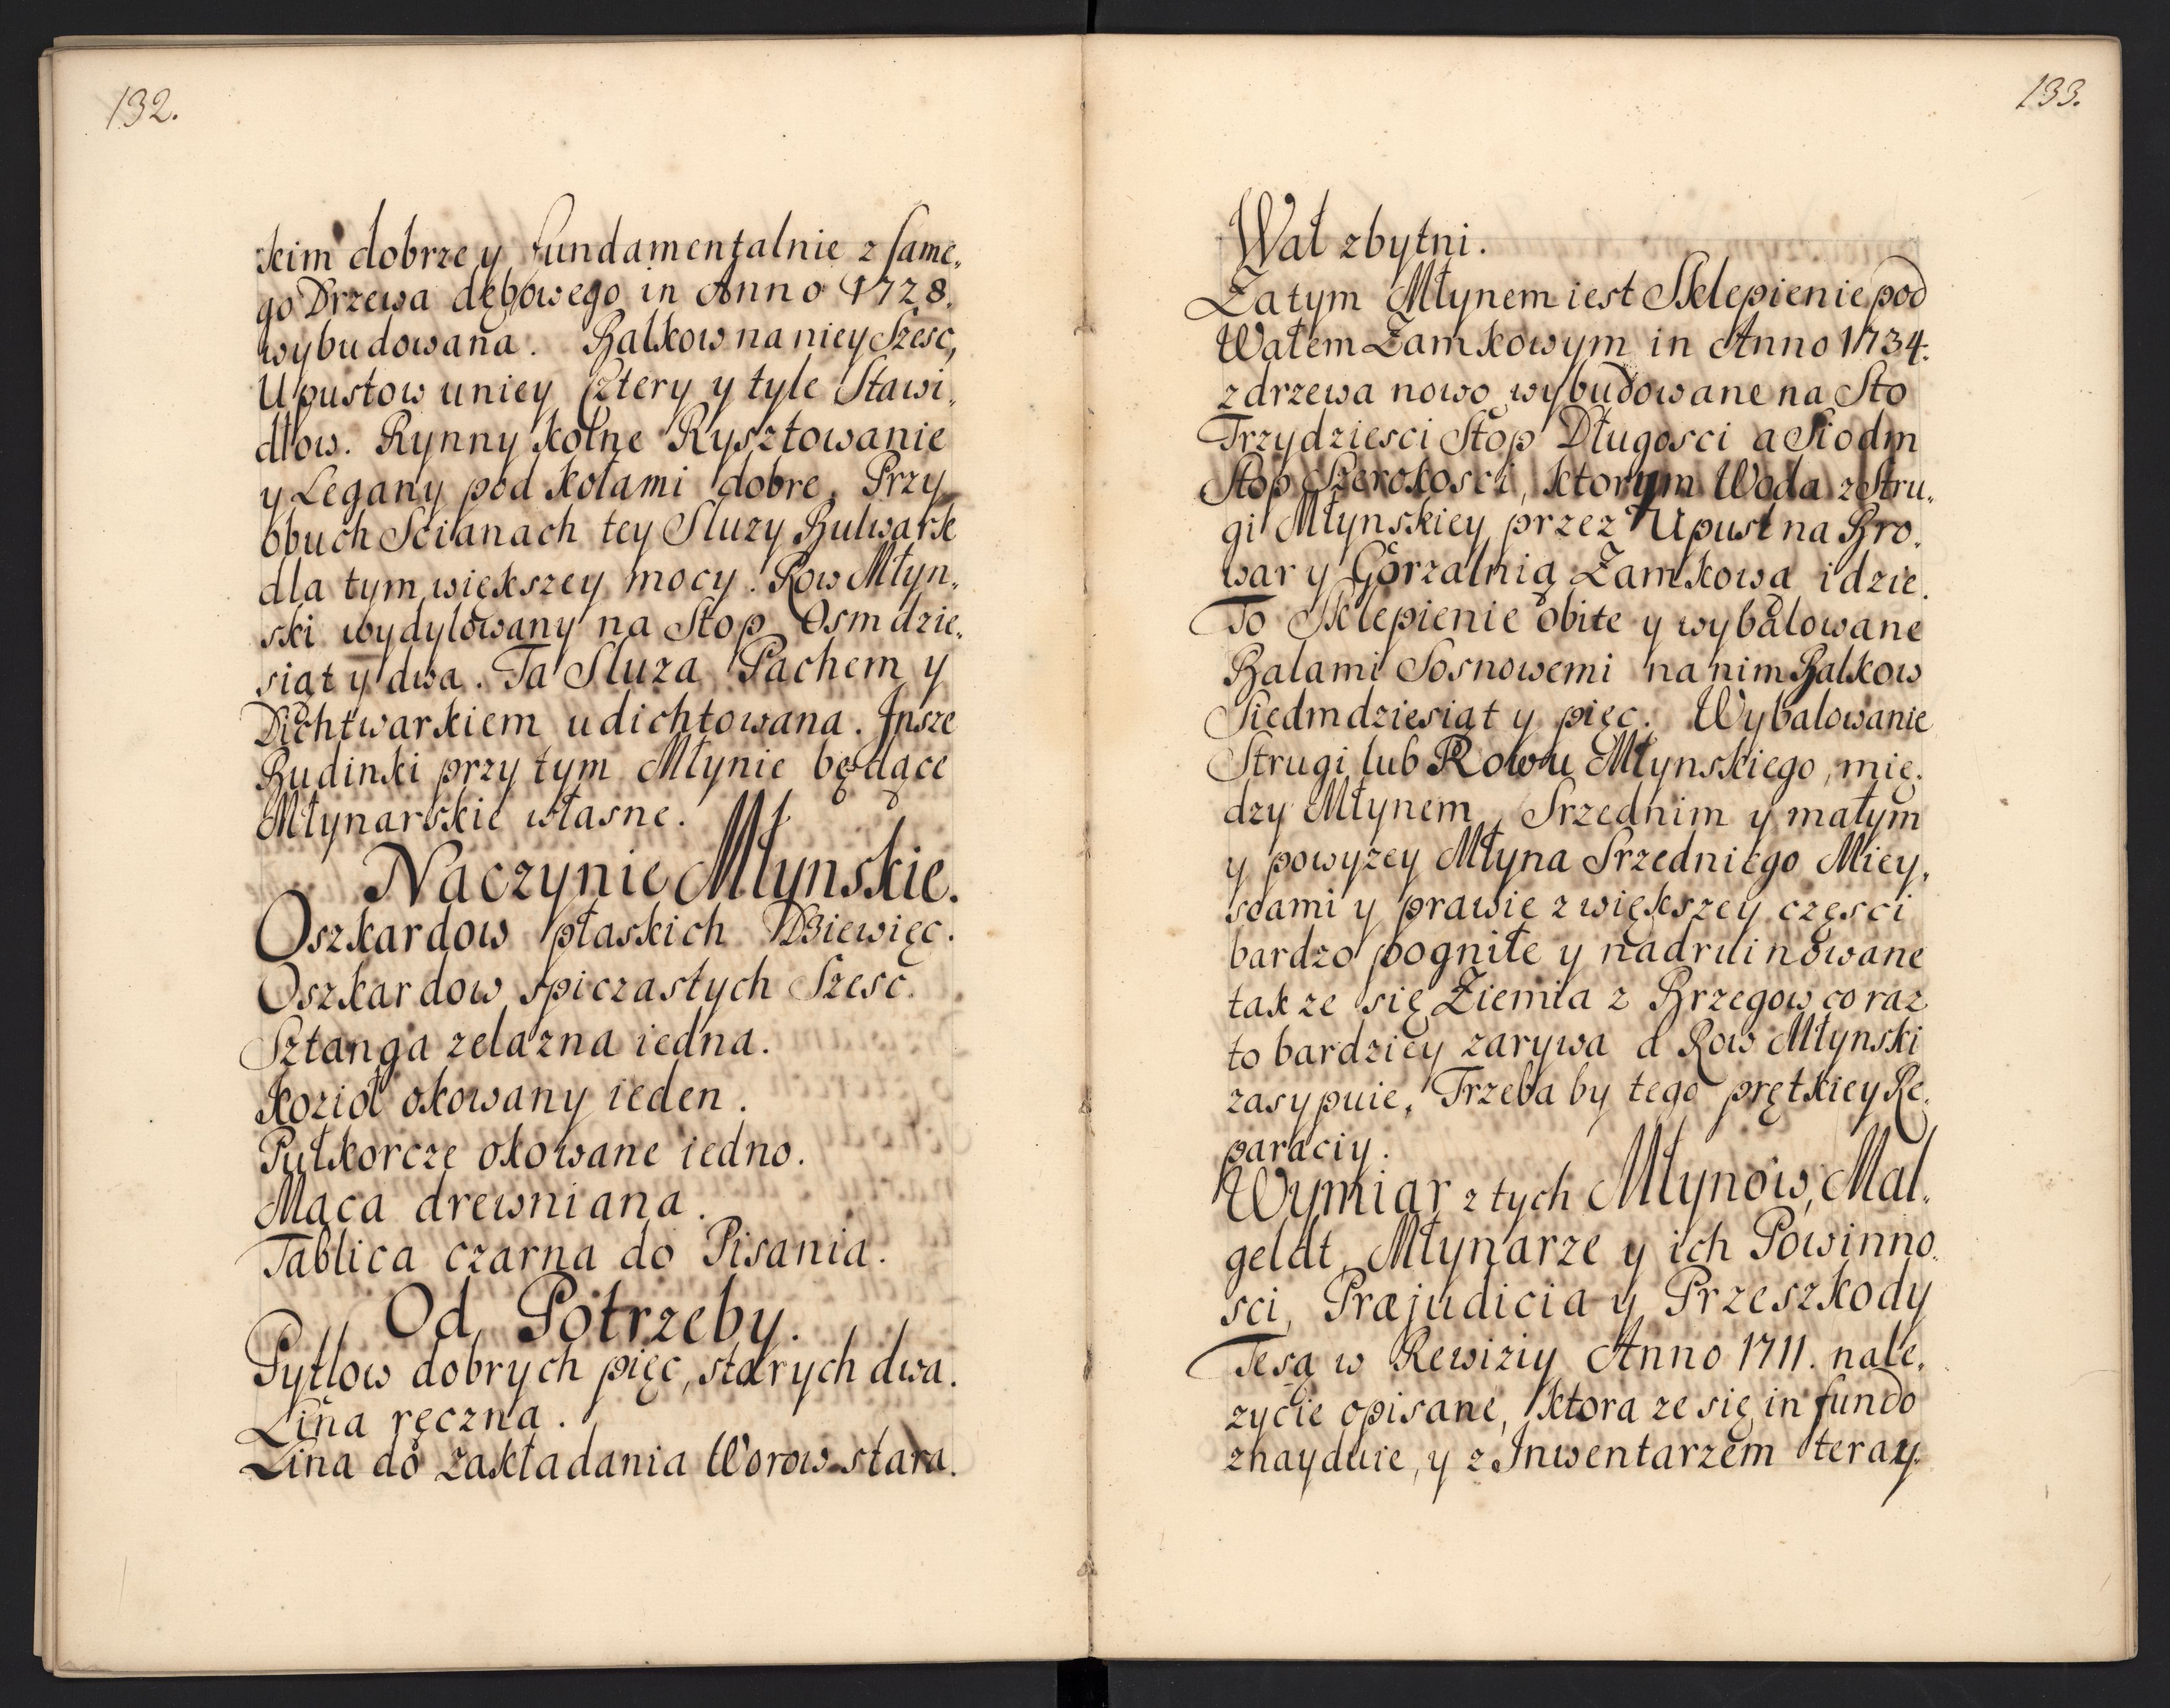 132.
skim dobrze y fundamentalnie z same„
go Drzewa dębowego in Anno 1728.
wybudowana. Balkow na niey Szesc,
Upustow u niey Cztery y tyle Stawi„
dłow. Rynny kolne Rysztowanie
y Legany pod kołami dobre. Przy
obuch Scianach tey Sluzy Bulwark
dla tym większey mocy. Row Młyn„
ski wydylowany na Stop Osmdzie„
siąt y dwa. Ta Sluza Pachem y
Dichtwarkiem udichtowana. Insze
Budinki przy tym Młynie będące
Młynarskie własne.
Naczynie Młynskie.
Oszkardow płaskich Dziewięc.
Oszkardow spiczastych Szesc.
Sztanga zelazna iedna.
Kozioł okowany ieden.
Pułkorcze okowane iedno.
Maca drewniana.
Tablica czarna do Pisania.
Od Potrzeby.
Pytlow dobrych pięc, starych dwa.
Lina ręczna.
Lina do zakładania Worow stara.
133.
Wał zbytni.
Za tym Młynem iest Sklepienie pod
Wałem Zamkowym in Anno 1734.
z drzewa nowo wybudowane na Sto
Trzydziesci Stop Długosci a Siodm
Stop Szerokosci, ktorym Woda z Stru„
gi Młynskiey przez Upust na Bro„
war y Gorzalnią Zamkową idzie.
To Sklepienie obite y wybalowane
Balami Sosnowemi na nim Balkow
Siedmdziesiąt y pięc. Wybalowanie
Strugi lub Rowu Młynskiego, mię„
dzy Młynem Srzednim y małym
y powyzey Młyna Srzedniego Miey„
scami y prawie z większey częsci
bardzo pogniłe y nadruinowane
tak ze się Ziemia z Brzegow co raz
to bardziey zarywa a Row Młynski
zasypuie. Trzeba by tego prętkiey Re„
paraciy.
Wymiar z tych Młynow, Mal„
geldt, Młynarze y ich Powinno„
sci, Præjudicia y Przeszkody
Te są w Rewiziy Anno 1711. nale„
zycie opisane, ktora ze się in fundo
znayduie, y z Inwentarzem teray„